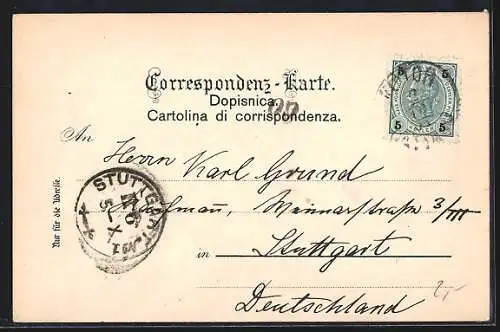 Correspondenz-Karte.
Dopisnica.
Cartolina di corrispondenza.
5 5
5 5
An
Herrn Karl Grund
3/III
in Stuttgart
Deutschland
STUTTGART No 1
5 X
Nur für die Adresse.